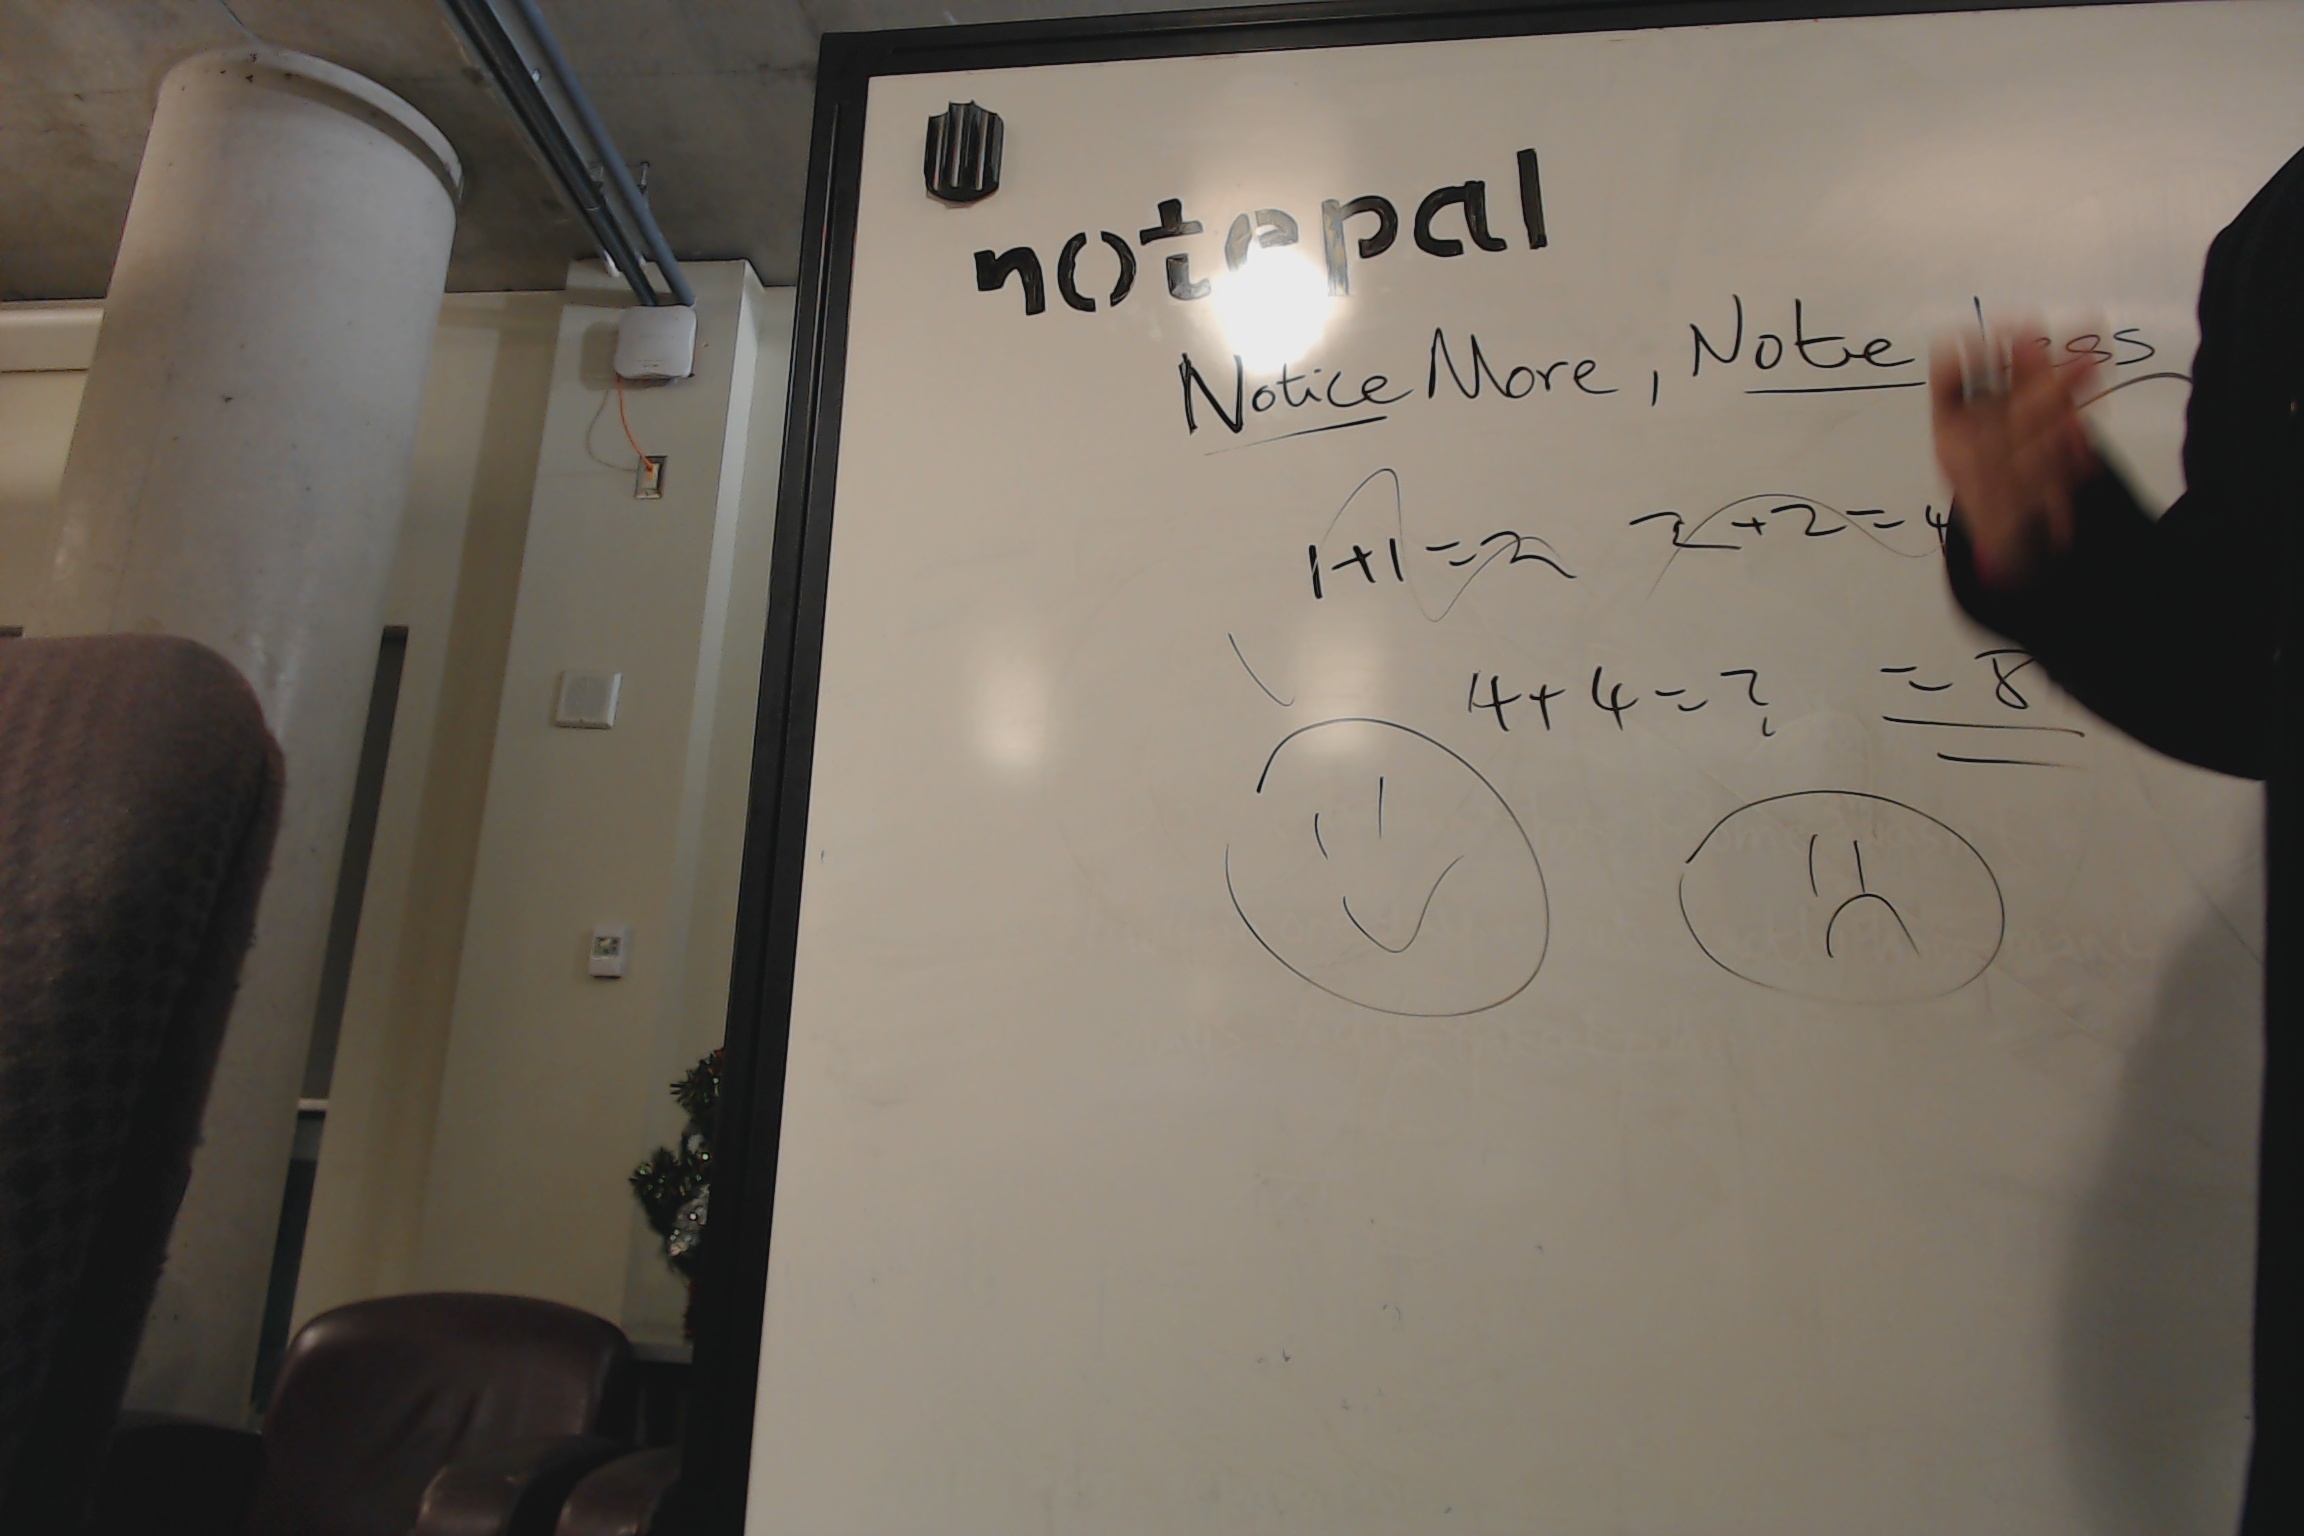 notepal
Notice More, Note Less
1+1=2 2+2=4
4+4=? =8